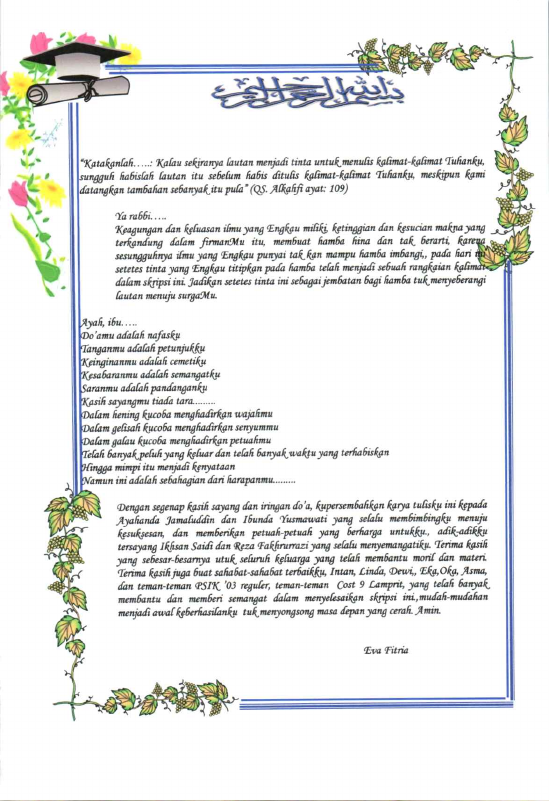 بسم الله الرحمن الرحيم
“Katakanlah…..: Kalau sekiranya lautan menjadi tinta untuk menulis kalimat-kalimat Tuhanku,
sungguh habislah lautan itu sebelum habis ditulis kalimat-kalimat Tuhanku, meskipun kami
datangkan tambahan sebanyak itu pula” (QS. Alkahfi ayat: 109)
Ya rabbi…..
Keagungan dan keluasan ilmu yang Engkau miliki, ketinggian dan kesucian makna yang
terkandung dalam firmanMu itu, membuat hamba hina dan tak berarti, karena
sesungguhnya ilmu yang Engkau punyai tak kan mampu hamba imbangi,, pada hari ini
setetes tinta yang Engkau titipkan pada hamba telah menjadi sebuah rangkaian kalimat
dalam skripsi ini. Jadikan setetes tinta ini sebagai jembatan bagi hamba tuk menyeberangi
lautan menuju surgaMu.
Ayah, ibu…..
Do’amu adalah nafasku
Tanganmu adalah petunjukku
Keinginanmu adalah cemetiku
Kesabaranmu adalah semangatku
Saranmu adalah pandanganku
Kasih sayangmu tiada tara.........
Dalam hening kucoba menghadirkan wajahmu
Dalam gelisah kucoba menghadirkan senyummu
Dalam galau kucoba menghadirkan petuahmu
Telah banyak peluh yang keluar dan telah banyak waktu yang terhabiskan
Hingga mimpi itu menjadi kenyataan
Namun ini adalah sebahagian dari harapanmu.........
Dengan segenap kasih sayang dan iringan do’a, kupersembahkan karya tulisku ini kepada
Ayahanda Jamaluddin dan Ibunda Yusmawati yang selalu membimbingku menuju
kesuksesan, dan memberikan petuah-petuah yang berharga untukku., adik-adikku
tersayang Ikhsan Saidi dan Reza Fakhrurrazi yang selalu menyemangatiku. Terima kasih
yang sebesar-besarnya utuk seluruh keluarga yang telah membantu moril dan materi.
Terima kasih juga buat sahabat-sahabat terbaikku, Intan, Linda, Dewi,, Eka,Oka, Asma,
dan teman-teman PSIK ’03 reguler, teman-teman Cost 9 Lamprit, yang telah banyak
membantu dan memberi semangat dalam menyelesaikan skripsi ini.,mudah-mudahan
menjadi awal keberhasilanku tuk menyongsong masa depan yang cerah. Amin.
Eva Fitria